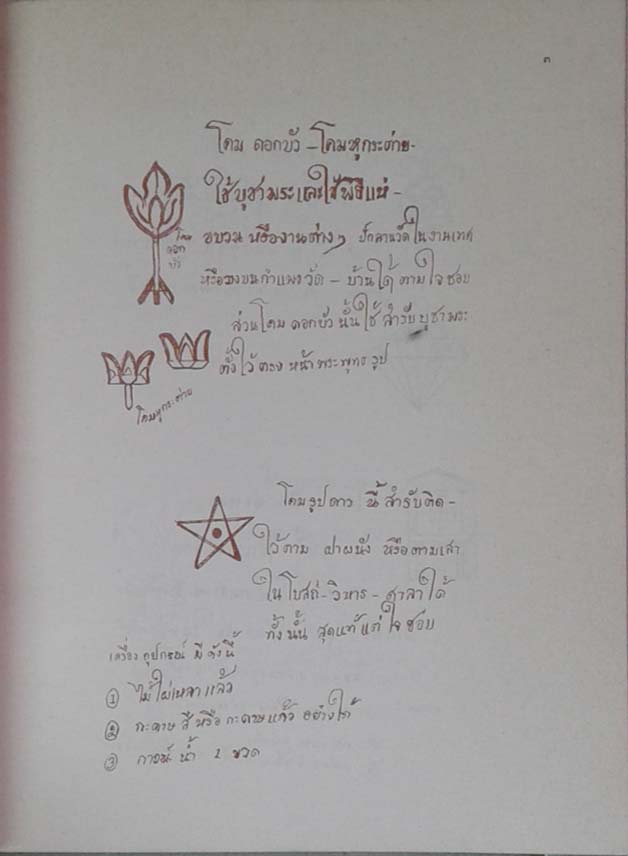 ๓
โคม ดอกบัว - โคมหูกระต่าย -
ใช้บูชาพระและใช้พิธีแห่ -
โคม
ดอก
บัว
ขบวน หรืองานต่างๆ ปักลานวัดในงานเทศ
หรือวางบนกำแพงวัด - บ้านได้ ตามใจชอบ
ส่วนโคม ดอกบัว นั้นใช้ สำรับบูชาพระ
ตั้งไว้ตรง หน้าพระพุทธรูป
โคมหูกระต่าย
โคมรูปดาว นี้สำรับติด -
ไว้ตาม ฝาผนัง หรือตามเสา
ในโบสถ์ - วิหาร - ศาลาได้
ทั้งนั้น สุดแท้แต่ใจชอบ
เครื่องอุปกรณ์ มีดังนี้
① ไม้ไผ่เหลาแล้ว
② กะดาษสีหรือกะดาษแก้วอย่างใด
③ กาวน้ำ 1 ขวด